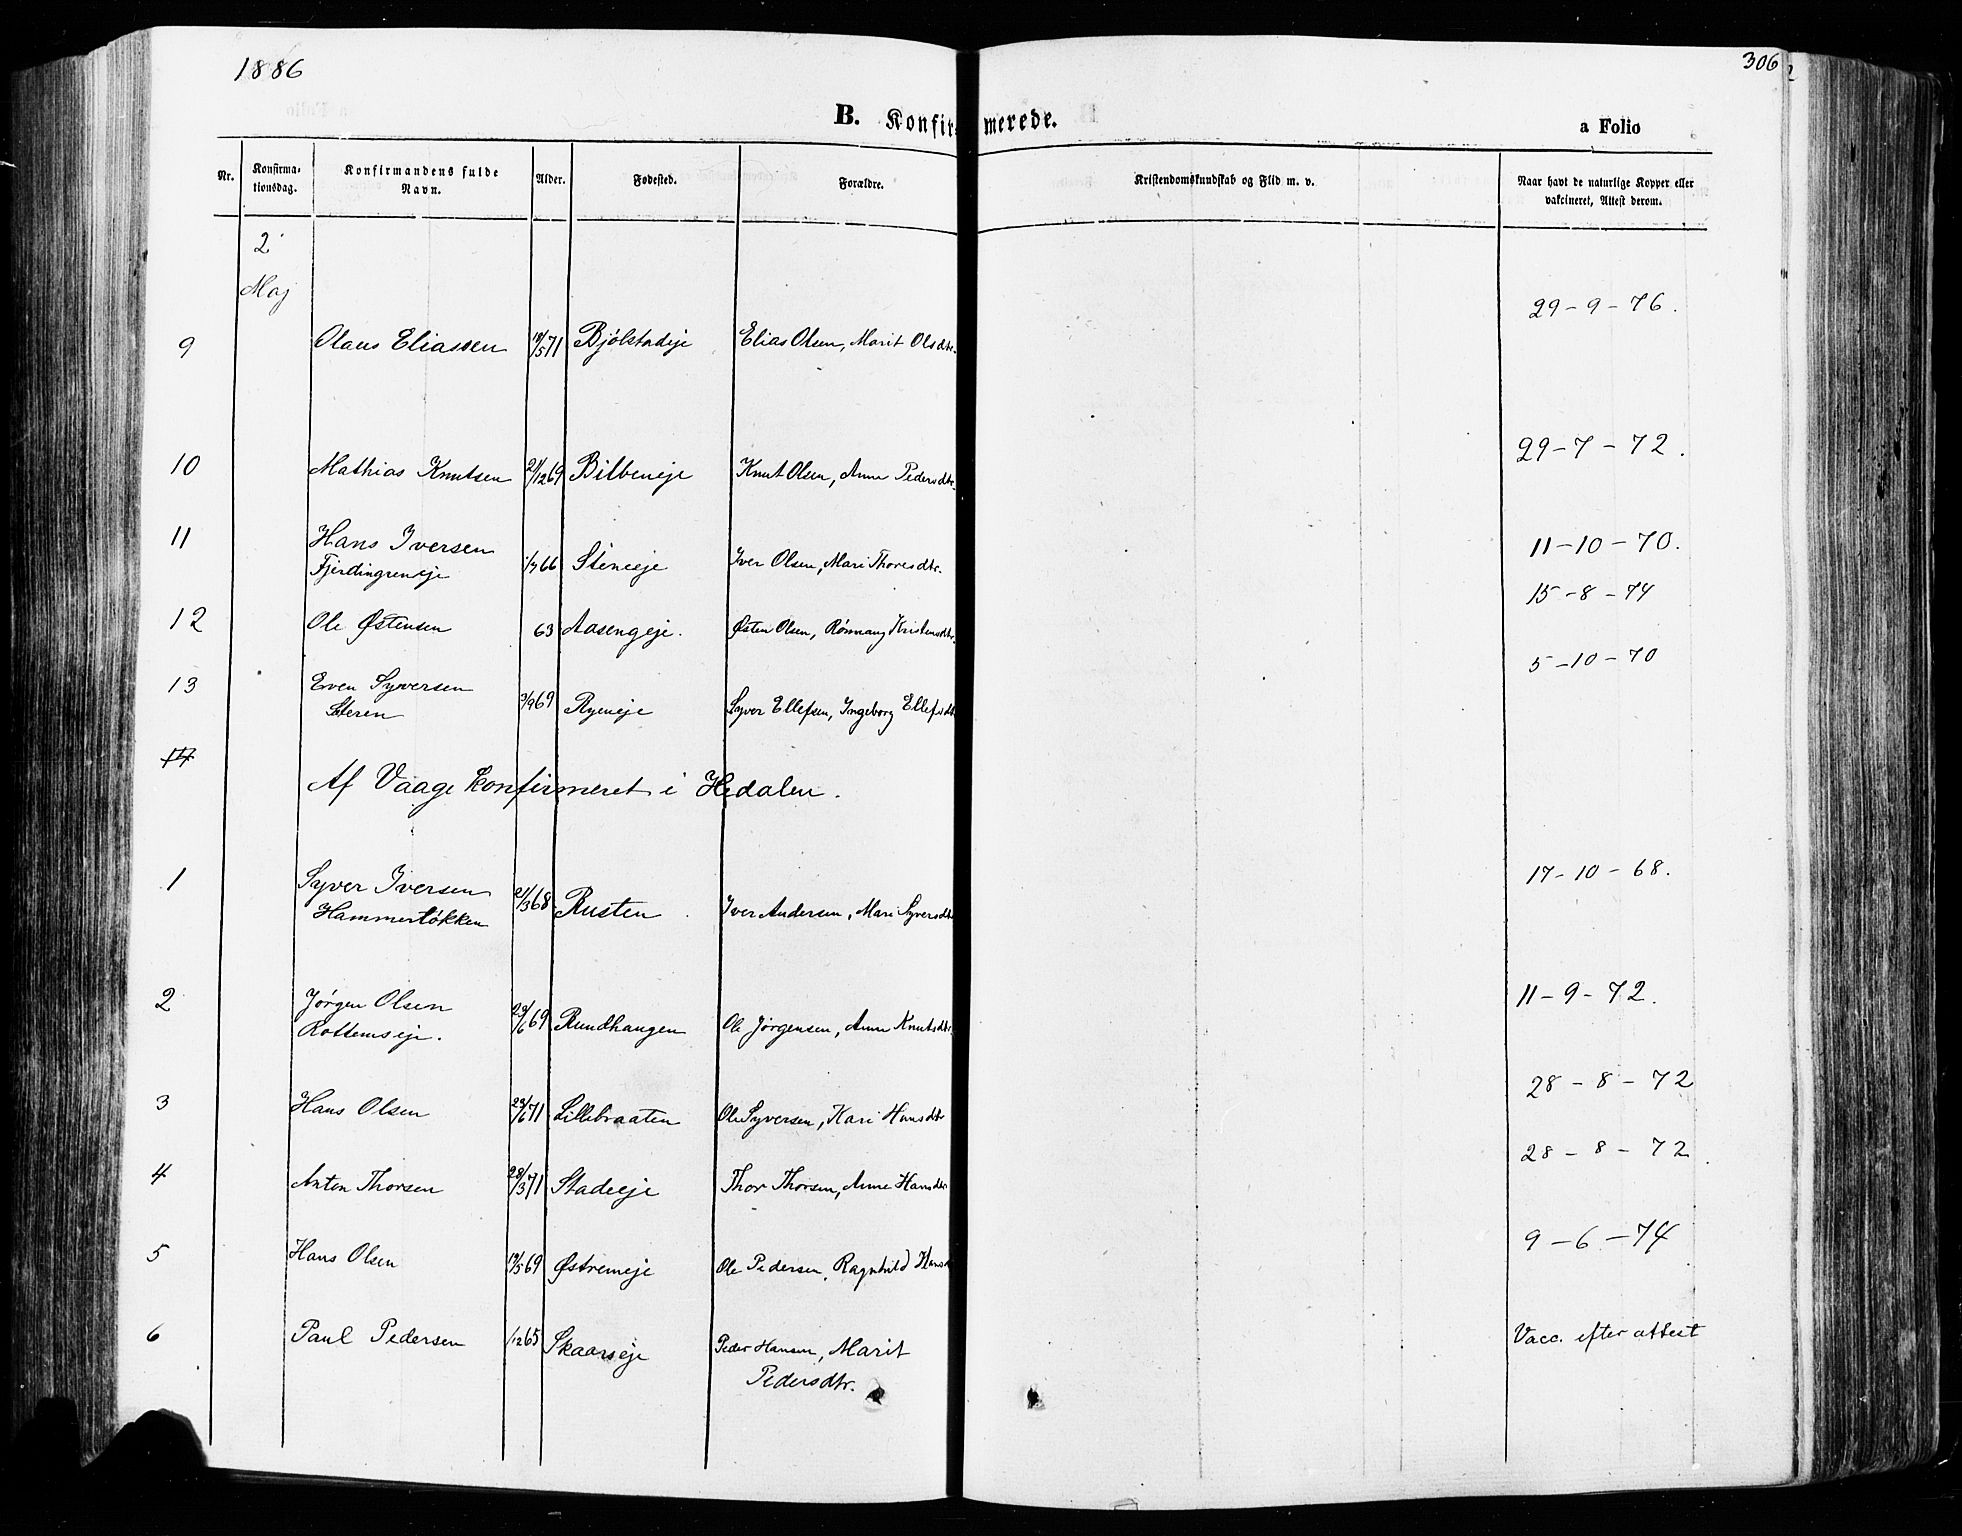 1886
306
B. Konfirmerede.
a Folio
Nr.
Konfirmationsdag.
Konfirmandens fulde Navn.
Alder.
Fødested.
Forældre.
Kristendomskundskab og Flid m. v.
Naar havt de naturlige Kopper eller vakcineret, Attest derom.
2
Maj
9 Olaus Eliassen /5 71 Bjölstadeje Elias Olsen, Marit Olsdtr. 29-9-76.
10 Mathias Knutsen 21/12 69 Bilbeneje Knut Olsen, Anne Pedersdtr. 29-7-72.
11 Hans Iversen 66 Steneje Iver Olsen, Mari Thoresdtr. 11-10-70.
Fjerdingreneje
12 Ole Østensen 63 Aasengeje. Østen Olsen, Rønnaug Kristensdtr. 15-8-74
13 Even Syversen 3/9 69 Ryeneje Syver Ellefsen, Ingeborg Ellefsdtr 5-10-70
Steren
14
Af Vaage konfirmeret i Hedalen.
1 Syver Iversen 21/3 68 Rusten Iver Andersen, Mari Syversdtr 17-10-68.
Hammerløkken
2 Jørgen Olsen 29/6 69 Rundhaugen Ole Jørgensen, Anne Knutsdtr 11-9-72.
Rottemseje.
3 Hans Olsen 23/6 71 Lillebraaten Ole Syversen, Kari Hansdtr 28-8-72
4 Anton Thorsen 28/3 71 Stadeeje Thor Thorsen, Anne Hansdtr 28-8-72.
5 Hans Olsen 19/5 69 Østremeje Ole Pedersen, Ragnhild Hansd 9-6-74
6 Paul Pedersen /12 65 Skaarseje Peder Hansen, Marit Vacc. efter attest
Pedersdtr.